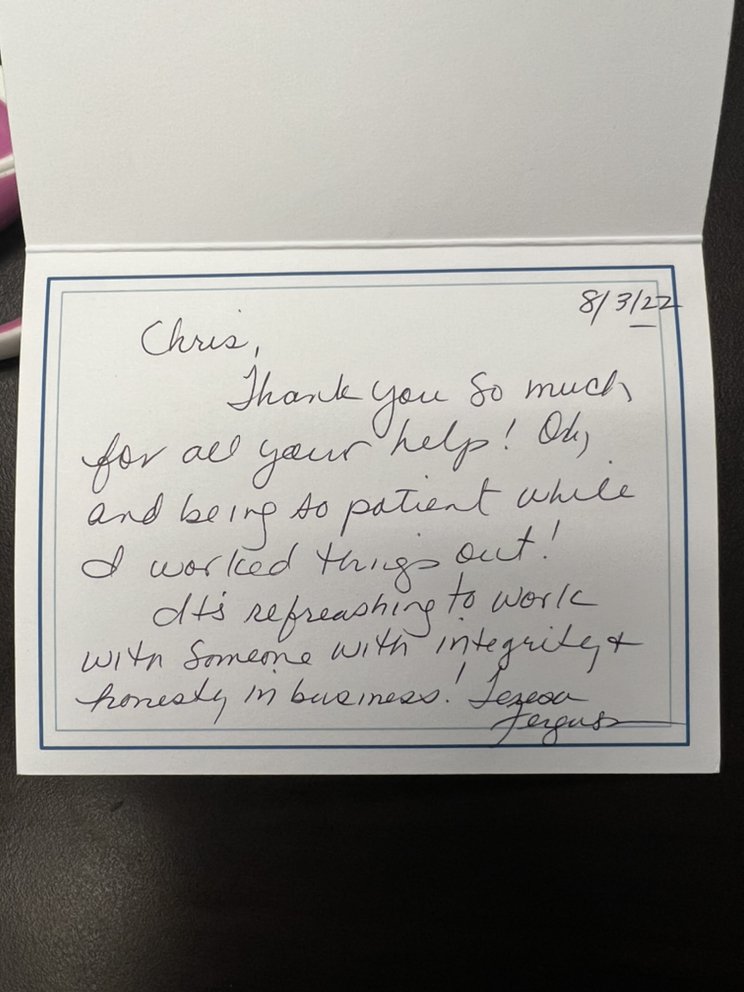 8/3/22
Chris,
Thank you so much
for all your help! Oh,
and being so patient while
I worked things out!
It's refreashing to work
with someone with integrity &
honesty in business! Teresa
Ferguson